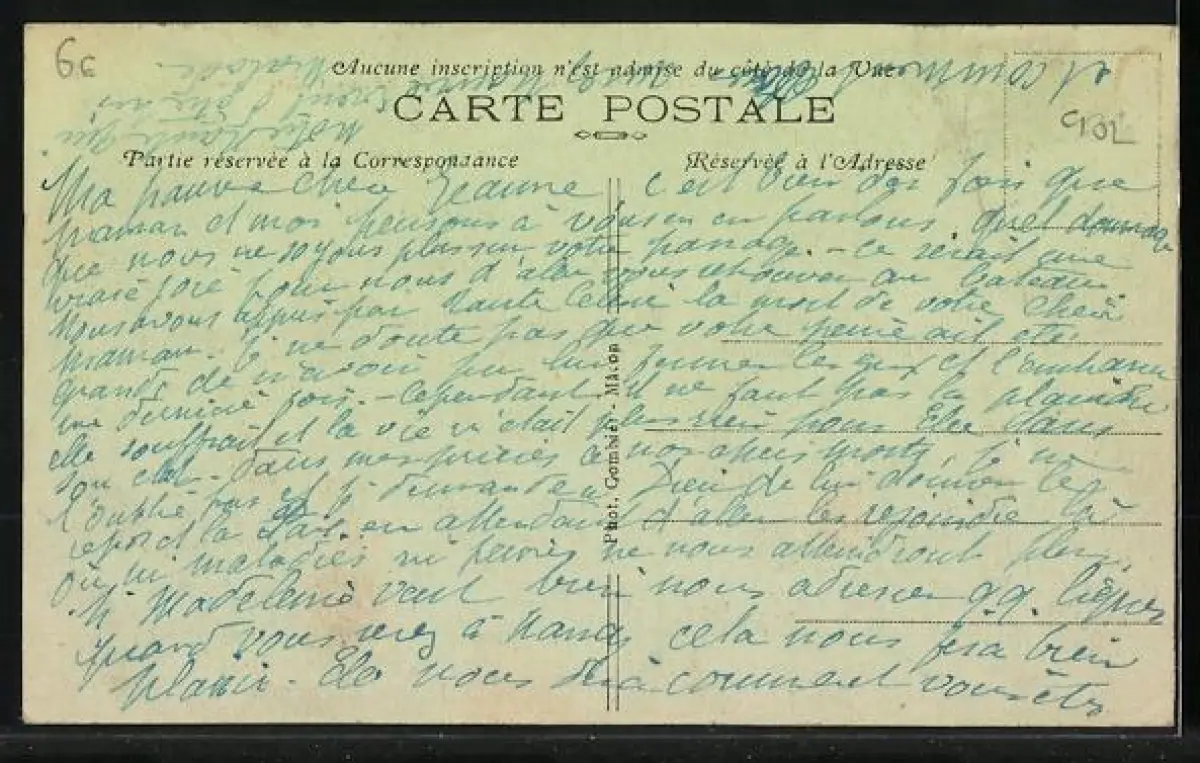 6€
Aucune inscription n'est admise du côté de la Vue
CARTE POSTALE
Partie réservée à la Correspondance
Réservée à l'Adresse
CPOL
Ma pauvre chère Jeanne c'est bien des fois que
maman et moi pensons à vous en en parlons, quel dommage
que nous ne soyons plus sur votre passage. - ce serait une
vraie joie pour nous d'aller vous retrouver au bateau.
Nous avons appris par tante Célinie la mort de votre chère
maman. Je ne doute pas que votre peine ait été
grande de n'avoir pu lui fermer les yeux et l'embrasser
une dernière fois. - cependant il ne faut pas la plaindre
elle souffrait et la vie n'était plus rien pour Elle dans
son état. Dans mes prières à nos chers morts, je ne
l'oublie pas et je demande à Dieu de lui donner le
repos et la paix. en attendant d'aller les rejoindre là
où ni maladies ni peines ne nous atteindront plus.
Si Madeleine veut bien nous adresser q.q. lignes
quand vous serez à Nancy cela nous fera bien
plaisir. Elle nous dira comment vous êtes
et comment
Phot. Combier - Mâcon